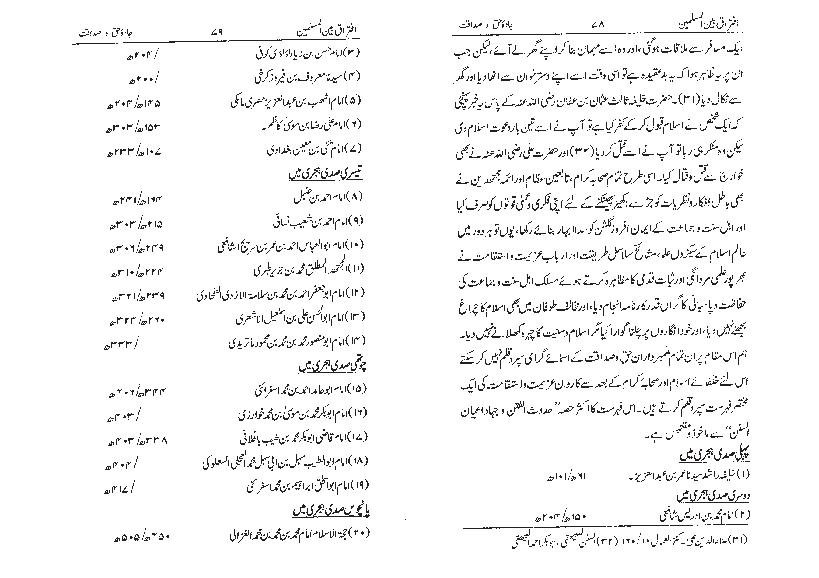 افتراق بین المسلمین ۷۸ جادۂ حق و صداقت
ایک مسافر سے ملاقات ہوگئی، اور وہ اسے مہمان بنا کر اپنے گھر لے آئے، لیکن جب
ان پر یہ ظاہر ہوا کہ یہ بدعقیدہ ہے تو اسی وقت اسے اپنے دسترخوان سے اٹھا دیا اور گھر
سے نکال دیا (۳۱)۔ حضرت خلیفہ ثالث عثمان بن عفان رضی اللہ عنہ کے پاس یہ خبر پہنچی
کہ ایک شخص نے اسلام قبول کر کے کفر کیا ہے تو آپ نے اسے تین بار دعوت اسلام دی
لیکن وہ منکر ہی رہا تو آپ نے اسے قتل کر دیا (۳۲) اور حضرت علی رضی اللہ عنہ نے بھی
خوارج سے قتل و قتال کیا۔ اسی طرح تمام صحابہ کرام، تابعین عظام اور ائمہ مجتہدین نے
بھی باطل افکار و نظریات کو جڑ سے اکھیڑ پھینکنے کے لئے اپنی فکری و عملی قوتوں کو صرف کیا
اور اہل سنت و جماعت کے ایمان افروز گلشن کو سدا بہار بنائے رکھا، یوں تو ہر دور میں
عالم اسلام کے سیکڑوں علماء، مشائخ سلاسل طریقت اور ارباب عزیمت و استقامت نے
بھرپور علمی مردانگی اور ثبات قدمی کا مظاہرہ کرتے ہوئے مسلک اہل سنت و جماعت کی
حفاظت و صیانت کا گراں قدر کارنامہ انجام دیا، اور مخالف طوفان میں بھی اسلام کا چراغ
بجھنے نہیں دیا، اور خود انگاروں پر چلنا گوارا کیا مگر اسلام و سنیت کا چہرہ کھلانے نہیں دیا۔
ہم اس مقام پر ان تمام علمبرداران حق و صداقت کے اسمائے گرامی سپرد قلم نہیں کر سکتے
اس لئے خلفائے اسلام اور صحابہ کرام کے بعد سے کاروان عزیمت و استقامت کی ایک
مختصر فہرست سپرد قلم کرتے ہیں۔ اس فہرست کا اکثر حصہ "حدوث الفتن و جہاد اعیان
السنن" سے ماخوذ و ملخص ہے۔
پہلی صدی ہجری میں
(۱) خلیفہ راشد سیدنا عمر بن عبدالعزیز۔ ۶۱ھ/۱۰۱ھ
دوسری صدی ہجری میں
(۲) امام محمد بن ادریس شافعی ۱۵۰ھ/۲۰۴ھ
(۳۱) علاء الدین، کنز العمال ۱۰/۱۶۰ (۳۲) السنن للبیہقی، ابوبکر احمد البیہقی
افتراق بین المسلمین ۷۹ جادۂ حق و صداقت
(۳) امام حسن بن زیاد لؤلؤی کوفی /۲۰۴ھ
(۴) سیدنا معروف بن فیروز کرخی /۲۰۰ھ
(۵) امام اشہب بن عبدالعزیز مصری مالکی ۱۴۵ھ/۲۰۴ھ
(۶) امام علی رضا بن موسیٰ کاظم۔ ۱۵۳ھ/۲۰۳ھ
(۷) امام یحییٰ بن معین بغدادی ۱۰۷ھ/۲۳۳ھ
تیسری صدی ہجری میں
(۸) امام احمد بن حنبل ۱۶۴ھ/۲۴۱ھ
(۹) امام احمد بن شعیب نسائی ۲۱۵ھ/۳۰۳ھ
(۱۰) امام ابوالعباس احمد بن عمر بن سریج الشافعی ۲۴۹ھ/۳۰۶ھ
(۱۱) المجتہد المطلق محمد بن جریر طبری ۲۲۴ھ/۳۱۰ھ
(۱۲) امام ابوجعفر احمد بن محمد بن سلامۃ الازدی الطحاوی ۲۳۹ھ/۳۲۱ھ
(۱۳) امام ابوالحسن علی بن اسمٰعیل الاشعری ۲۶۰ھ/۳۲۴ھ
(۱۴) امام ابو منصور محمد بن محمد بن محمود ماتریدی /۳۳۳ھ
چوتھی صدی ہجری میں
(۱۵) امام ابو حامد احمد بن محمد اسفرائنی ۳۴۴ھ/۴۰۶ھ
(۱۶) امام ابوبکر محمد بن موسیٰ بن محمد خوارزمی /۴۰۳ھ
(۱۷) امام قاضی ابوبکر محمد بن طیب باقلانی ۳۳۸ھ/۴۰۳ھ
(۱۸) امام ابوالطیب سہل بن ابی سہل محمد العجلی الصعلوکی /۴۰۴ھ
(۱۹) امام ابواسحٰق ابراہیم بن محمد اسفرائنی /۴۱۷ھ
پانچویں صدی ہجری میں
(۲۰) حجۃ الاسلام امام محمد بن محمد بن محمد الغزالی ۴۵۰ھ/۵۰۵ھ